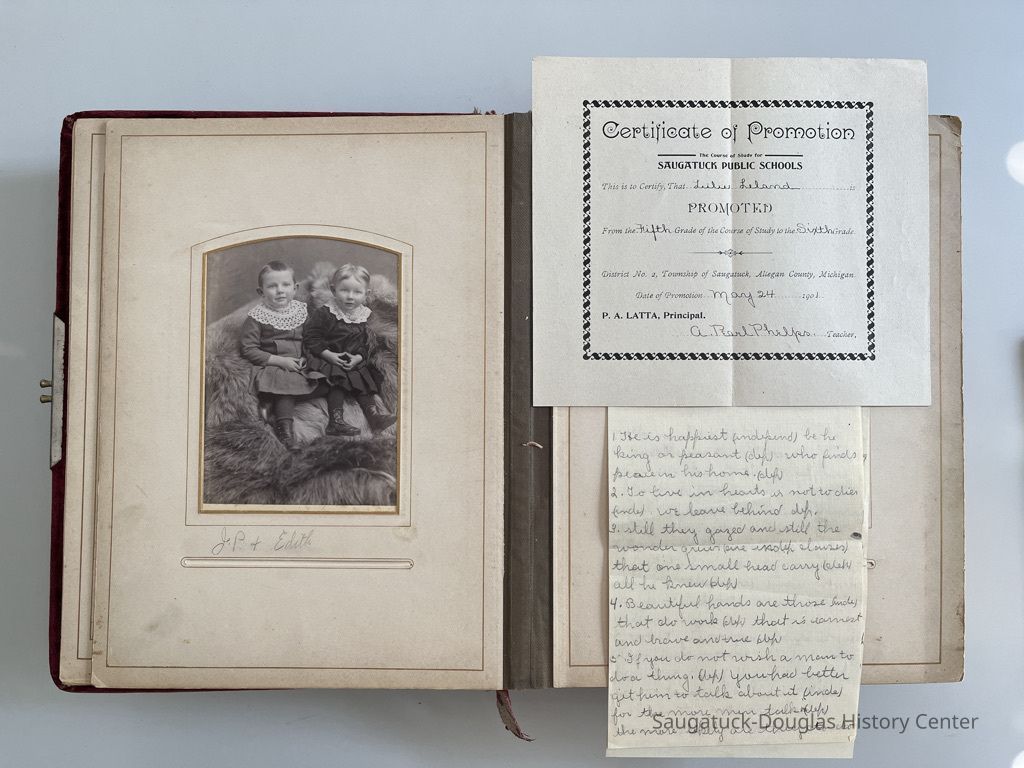 J.P. + Edith
Certificate of Promotion
The Course of Study for
SAUGATUCK PUBLIC SCHOOLS
This is to Certify, That Lulu Leland is
PROMOTED
From the Fifth Grade of the Course of Study to the Sixth Grade.
District No. 2, Township of Saugatuck, Allegan County, Michigan
Date of Promotion May 24 1901.
P. A. LATTA, Principal.
A. Pearl Phelps Teacher.
1. He is happiest (independ) be he
king or peasant (dep) who finds
peace in his home. (dep)
2. To live in hearts is not to die
(inde). we leave behind dep.
3. still they gazed and still the
wonder grew
that one small head carry (dep)
all he knew (dep)
4. Beautiful hands are those (inde)
that do work (dep) that is earnest
and brave and true (dep)
5. If you do not wish a man to
do a thing. (dep) you had better
get him to talk about it (inde)
for the more men talk (dep)
the more are
Saugatuck-Douglas History Center